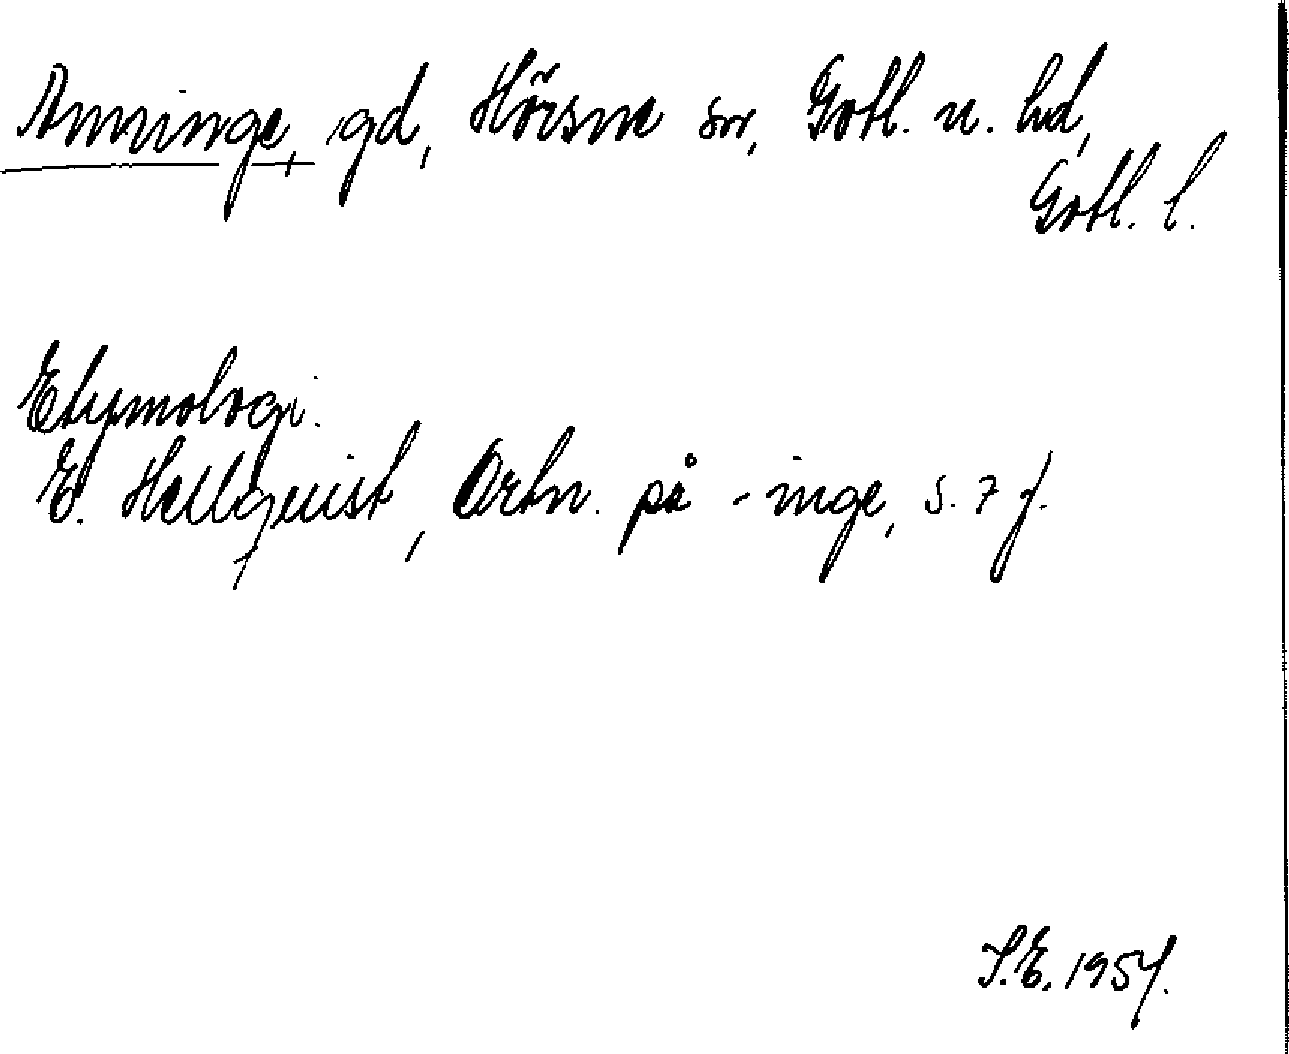 Anninge, gd, Hörsne sn, Gotl. n. hd,
Gotl. l.
Etymologi.
E. Hellquist, Ortn. på -inge, s. 7 f.
S.E. 1954.